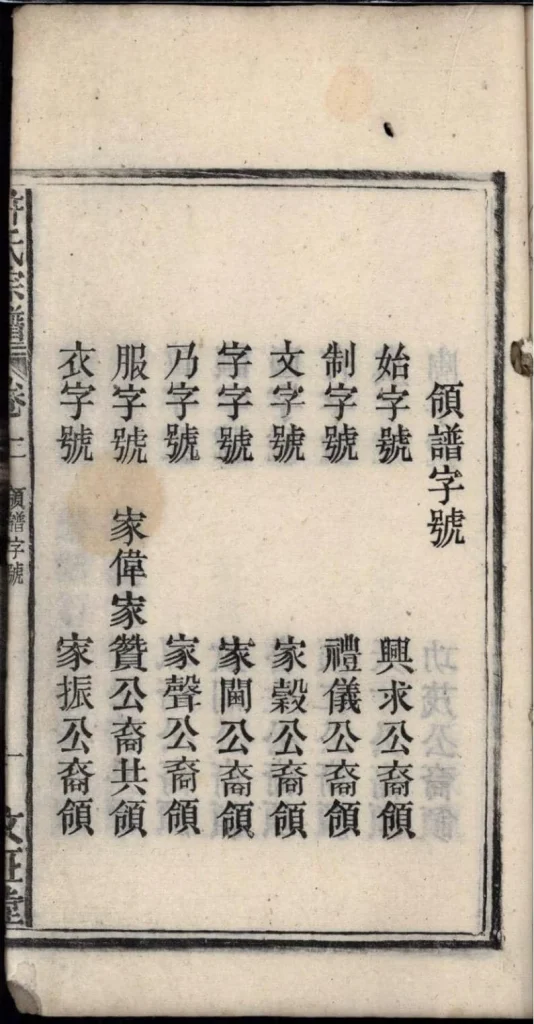 領譜字號
始字號 興求公裔領
制字號 禮儀公裔領
文字號 家穀公裔領
字字號 家閫公裔領
乃字號 家聲公裔領
服字號 家偉家贊公裔共領
衣字號 家振公裔領
氏宗譜 卷 領譜字號 一